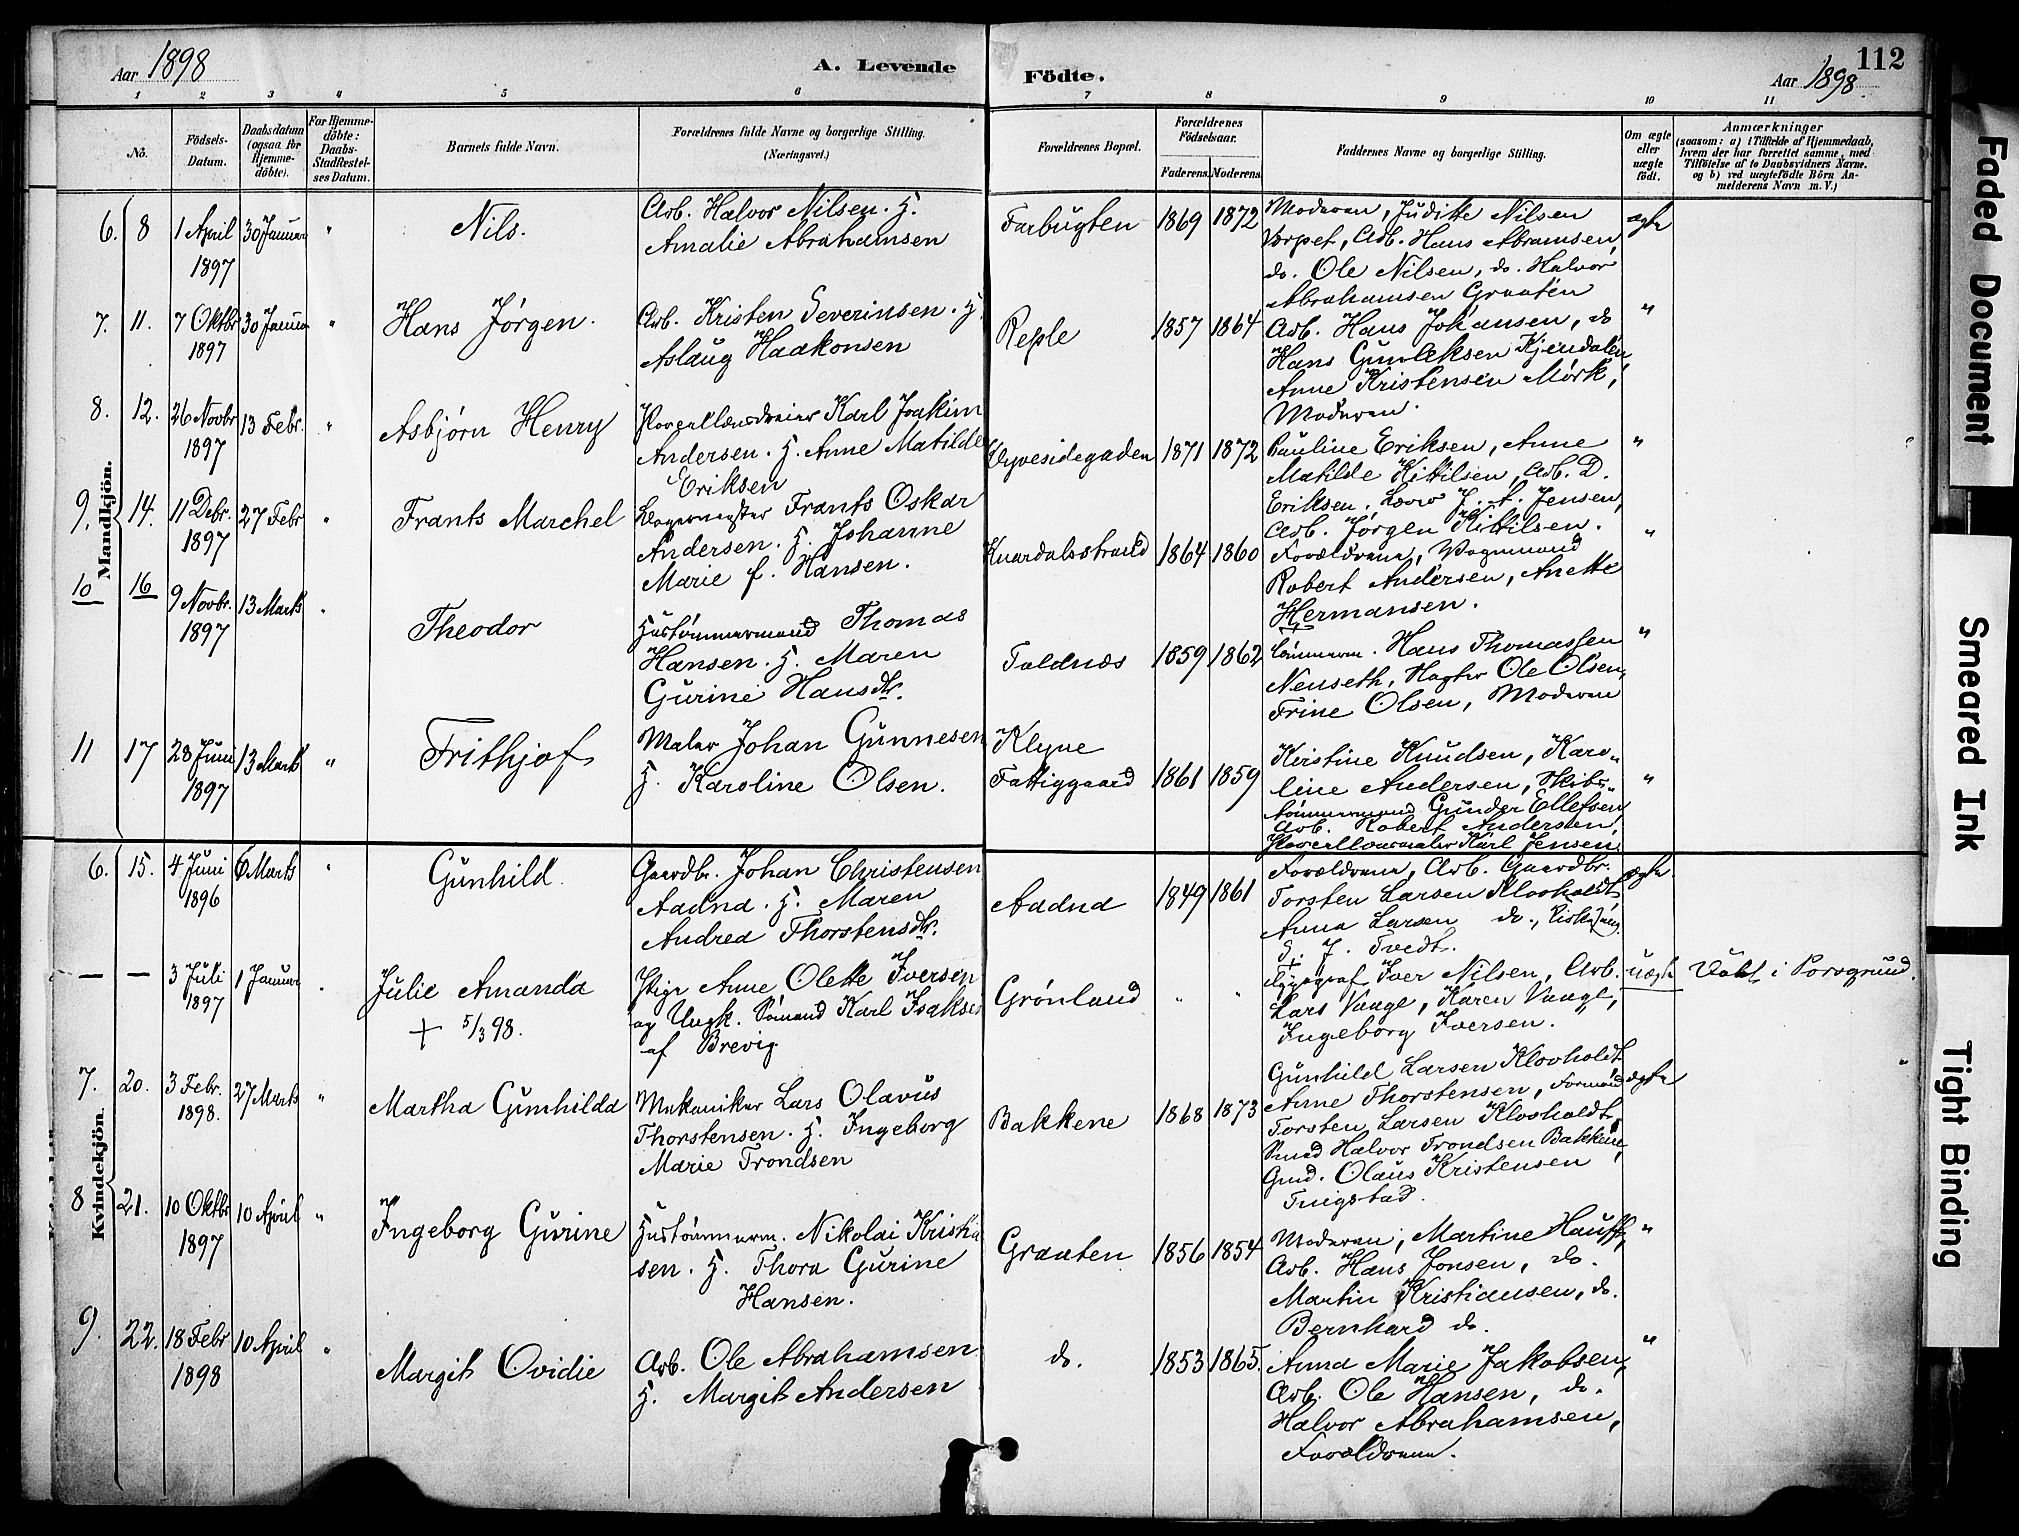 Aar 1898
A. Levende
Födte.
Aar 1898.
112
1 2 3 4 5 6 7 8 9 10 11
No.
Födsels-Datum.
Daabsdatum (ogsaa for Hjemme-döbte).
For Hjemme-döbte: Daabs-Stadfæstel-ses Datum.
Barnets fulde Navn.
Forældrenes fulde Navne og borgerlige Stilling. (Næringsvei.)
Forældrenes Bopæl.
Forældrenes Födselsaar.
Faderens. Moderens.
Faddernes Navne og borgerlige Stilling.
Om ægte eller uægte födt.
Anmærkninger
(saasom: a) i Tilfælde af Hjemmedaab,
hvem der har forrettet samme, med
Tilföielse af to Daabsvidners Navne.
og b) ved uægtefödte Börn An-
melderens Navn m. V.)
Mandkjön.
6. 8 1 April 1897 30 Januar " Nils.
Arb. Halvor Nilsen. H.
Amalie Abrahamsen
Farbugten 1869 1872
Moderen, Juditte Nilsen
Vorpet, Arb. Hans Abramsen,
do. Ole Nilsen, do. Halvor
Abrahamsen Graaten
ægte
7. 11. 7 Oktbr 1897 30 Januar " Hans Jørgen.
Arb. Kristen Severinsen. H.
Aslaug Haakonsen
Reple 1857 1864
Arb. Hans Johansen, do
Hans Gunleksen Kjendalen,
Anne Kristensen Mörk,
Moderen.
"
8. 12. 26 Novbr 1897 13 Febr. " Asbjørn Henry
Porcellænsdreier Karl Joakim
Andersen. H. Anne Matilde
Eriksen
Vyvesidegaden 1871 1872
Pauline Eriksen, Anne
Matilde Kittilsen, Arb. D.
Eriksen, Lærer J. A. Jensen,
Arb. Jørgen Kittilsen.
"
9. 14. 11 Debr. 1897 27 Febr " Frants Marchel
Lagermester Frants Oskar
Andersen. H. Johanne
Marie f. Hansen.
Knardalsstrand 1864 1860
Forældrene, Vognmand
Robert Andersen, Anette
Hermansen.
"
10 16 9 Novbr. 1897 13 Marts " Theodor
Hustömmermand Thomas
Hansen. H. Maren
Gurine Hansdtr.
Toldnæs 1859 1862
Tömmerm. Hans Thomassen
Nenseth, Ole Olsen,
Trine Olsen, Moderen
"
11 17 28 Juni 1897 13 Marts " Frithjof
Maler Johan Gunnesen
H. Karoline Olsen.
Klyve
Fattiggaard 1861 1859
Kirstine Knudsen, Karo-
line Andersen, Skibs-
tömmermand Gunder Ellefsen,
Arb. Robert Andersen,
Porcellænsmaler Karl Jensen
"
Kvindekjön.
6. 15. 4 Juni 1896 6 Marts " Gunhild.
Gaardbr. Johan Christensen
Aadna. H. Maren
Andrea Thorstensdtr.
Aadna 1849 1861
Forældrene, Arb. Gaardbr.
Torsten Larsen Klovholdt,
Anna Larsen do.,
J. Tvedt.
ægte
— — 3 Juli 1897 1 Januar " Julie Amanda
+ 5/3 98.
Pige Anne Olette Iversen
og Ungk. Sömand Karl Isaksen
af Brevig
Grønland " "
Typograf Iver Nilsen, Arb.
Lars Vauge, Karen Vauge,
Ingeborg Iversen.
uægte
Döbt i Porsgrund.
7. 20. 3 Febr. 1898. 27 Marts " Martha Gunhilda
Mekaniker Lars Olavus
Thorstensen. H. Ingeborg
Marie Trondsen
Bakkene 1868 1873
Gunhild Larsen Klovholdt
Anne Thorstensen, Formand
Torsten Larsen Klovholdt,
Smed Halvor Trondsen Bakkene,
Gmd. Olaus Kristensen
ægte
8 21. 10 Oktbr 1897 10 April " Ingeborg Gurine
Hustömmerm. Nikolai Kristian
sen. H. Thora Gurine
Hansen.
Graaten 1856 1854
Moderen, Martine Hauff,
Arb. Hans Jonsen, do.
Martin Kristiansen, do.
Bernhard do.
"
9. 22. 18 Febr 1898 10 April " Margit Ovidie
Arb. Ole Abrahamsen
H. Margit Andersen
do. 1853 1865.
Anna Marie Jakobsen,
Arb. Ole Hansen, do.
Halvor Abrahamsen,
Forældrene.
"
Faded Document
Smeared Ink
Tight Binding